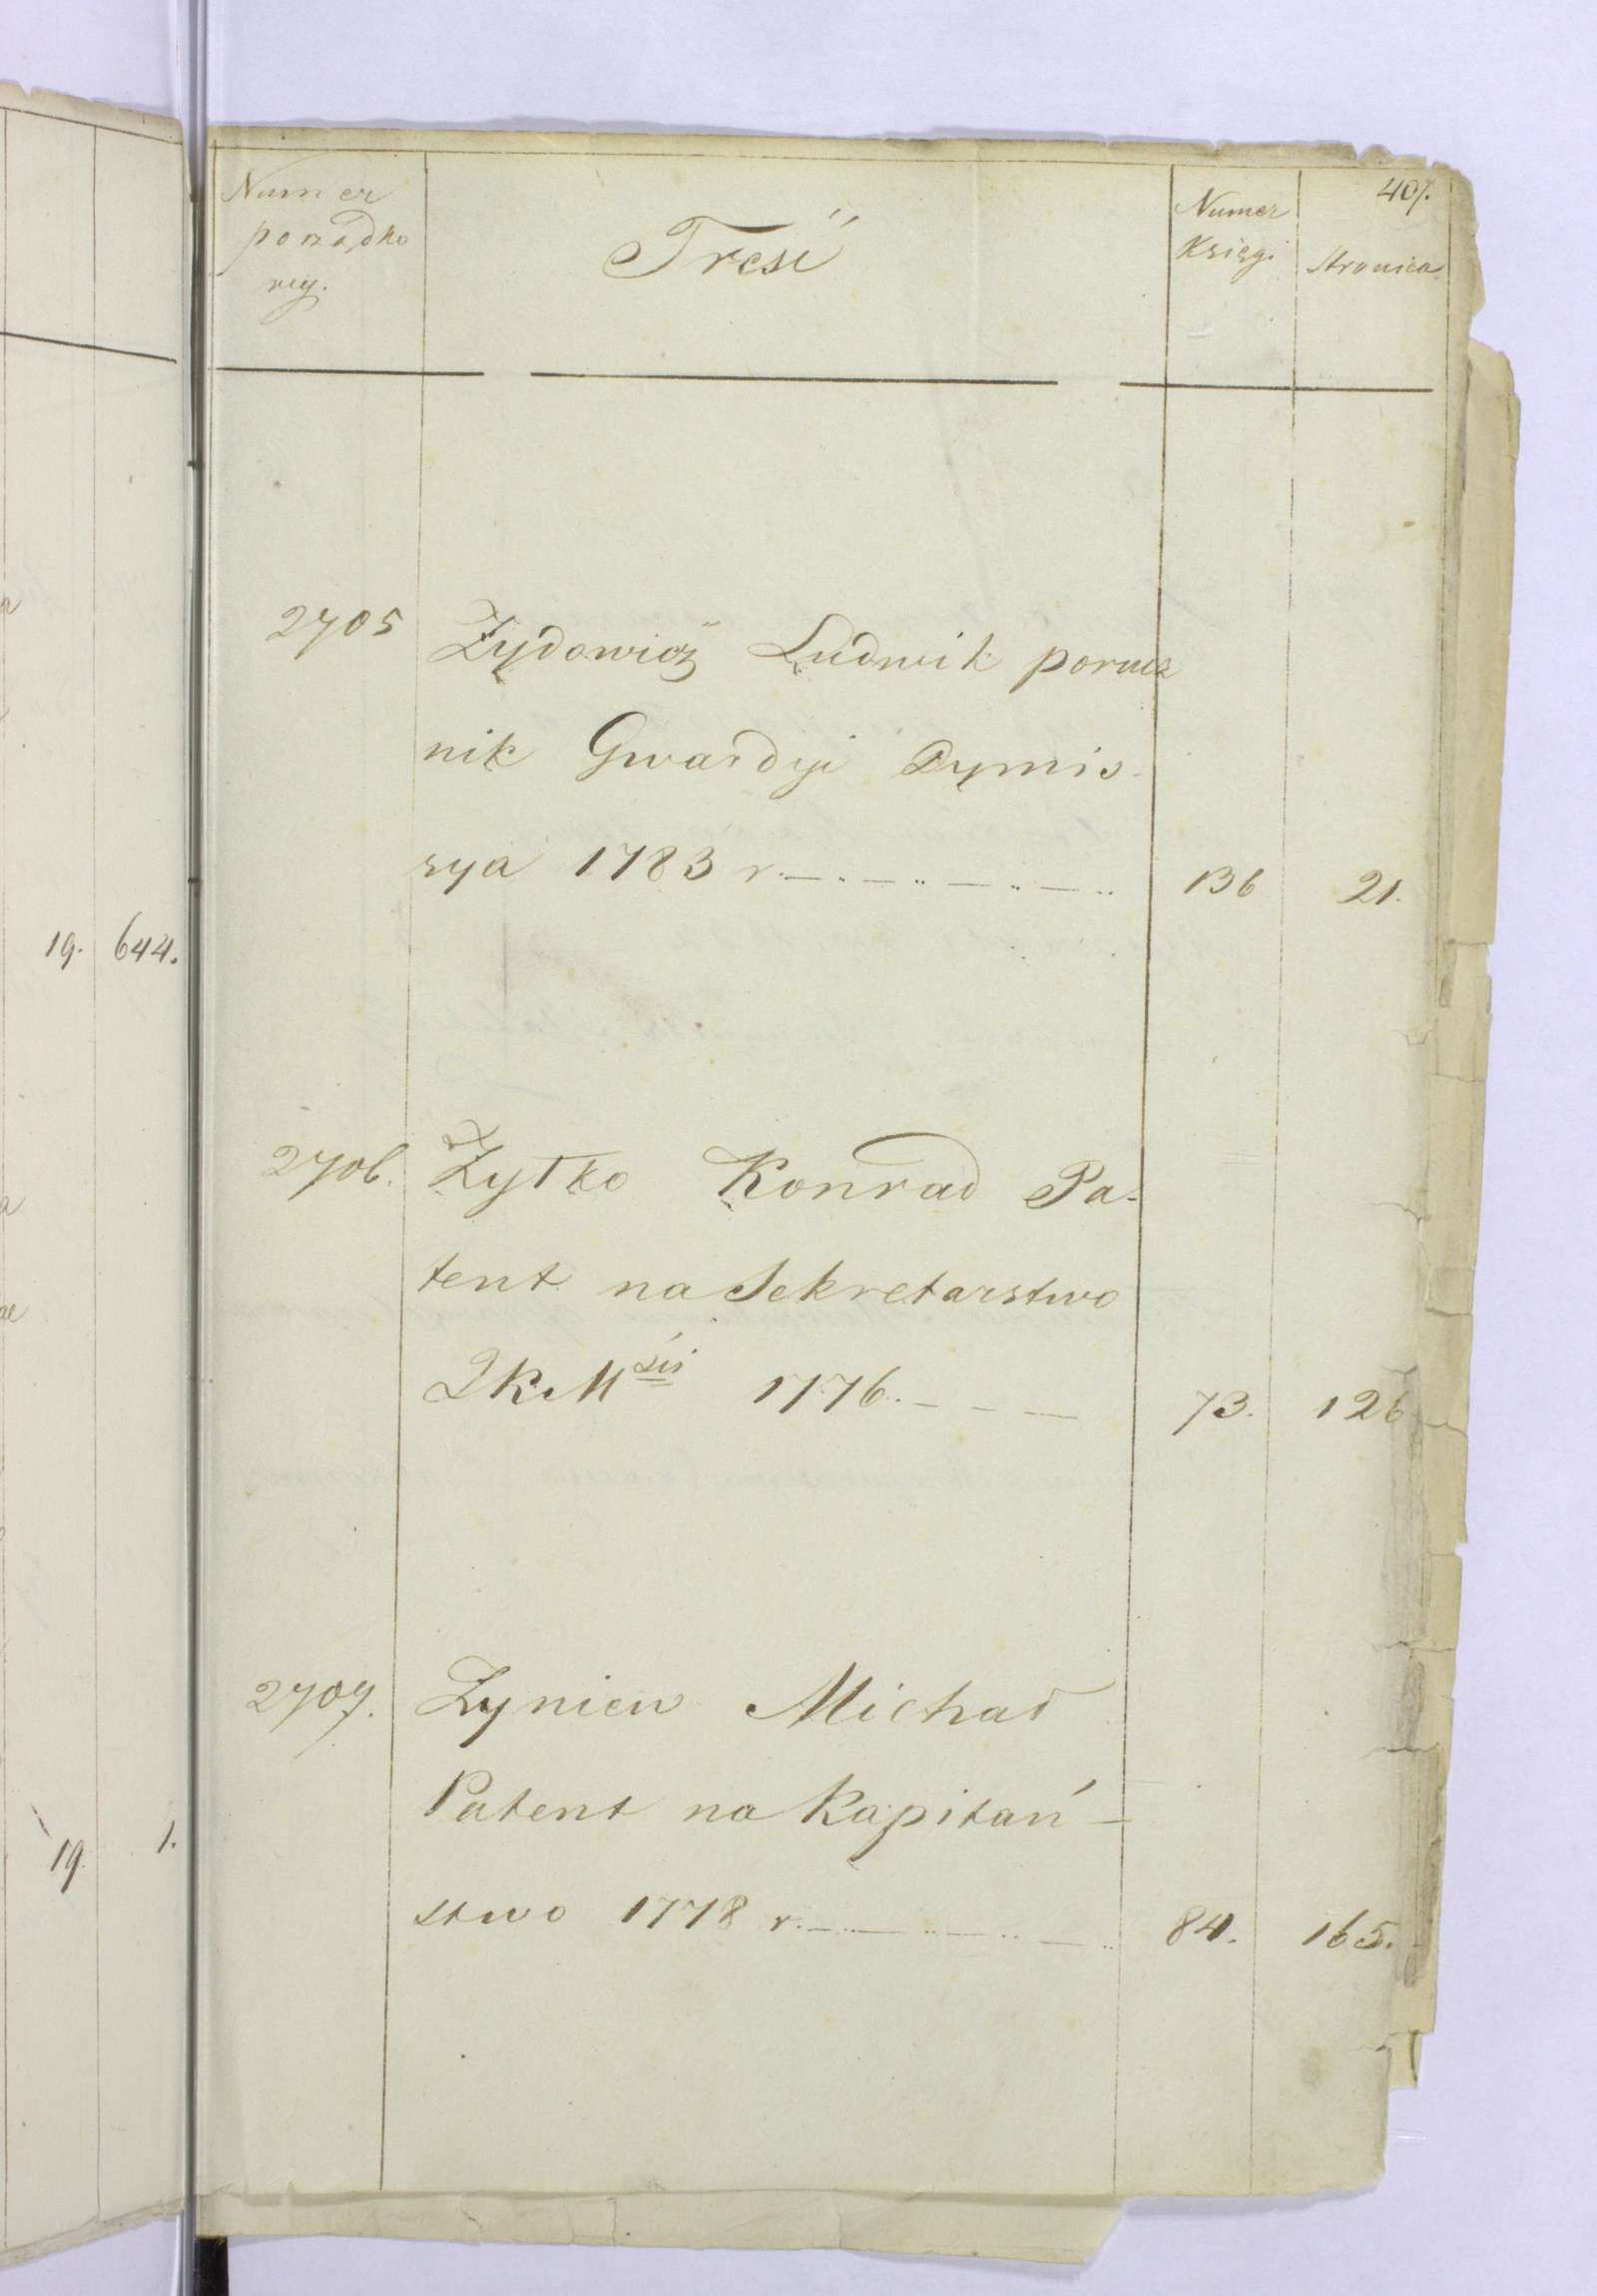 19. 644.
19 1.
407.
Numer
porządko
wy.
Treść
Numer
Księgi
Stronica
2705 Żydowicz Ludwik porucz
nik Gwardyi Dymis-
sya 1783 r. 136 21.
2706. Żytko Konrad Pa-
tent na Sekretarstwo
JKMści 1776. 73. 126
2707. Zyniew Michał
Patent na Kapitań-
stwo 1778 r. 84. 165.